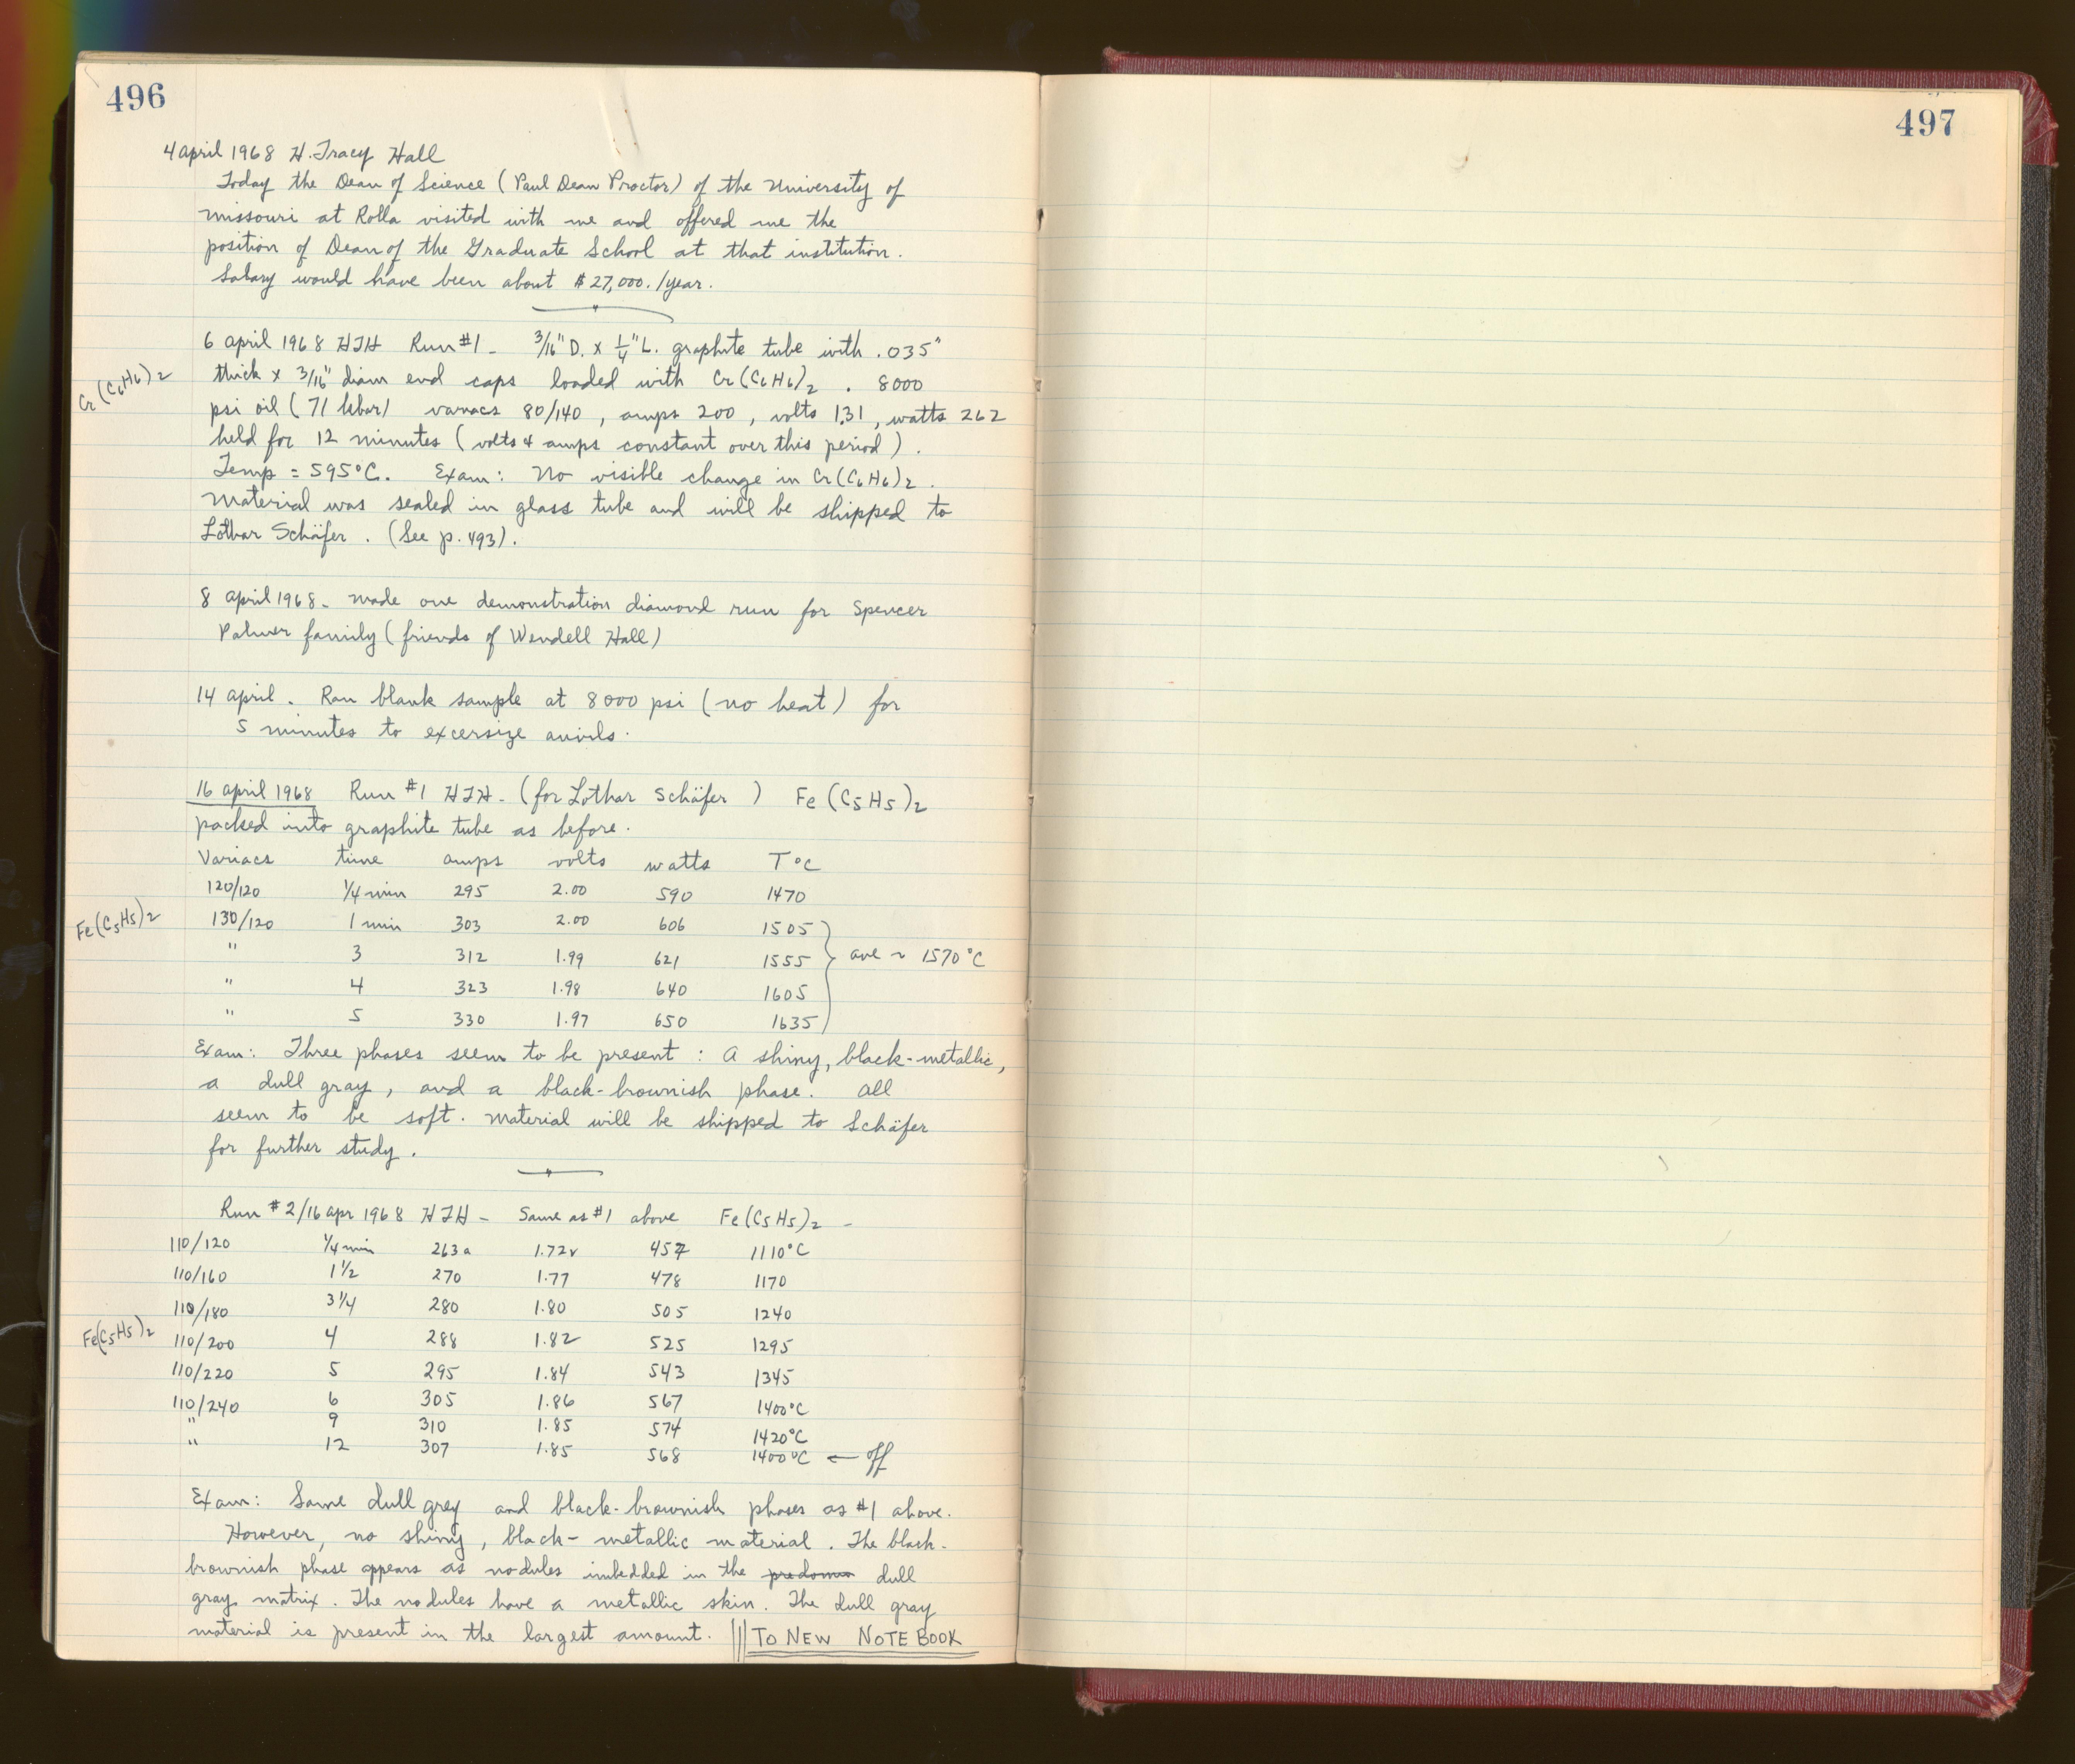 496
4 April 1968 H. Tracy Hall
Today the Dean of Science (Paul Dean Proctor) of the University of
Missouri at Rolla visited with me and offered me the
position of Dean of the Graduate School at that institution.
Salary would have been about $27,000./year.
6 April 1968 HTH Run #1 - 3/16" D. x 1/4" L. graphite tube with .035"
thick x 3/16" diam end caps loaded with Cr(C6H6)2 . 8000
Cr(C6H6)2
psi oil (71 kbar) variacs 80/140, amps 200, volts 1.31, watts 262
held for 12 minutes (volts & amps constant over this period).
Temp = 595°C. Exam: No visible change in Cr(C6H6)2.
Material was sealed in glass tube and will be shipped to
Lothar Schäfer. (See p. 493).
8 April 1968 - Made one demonstration diamond run for Spencer
Palmer family (friends of Wendell Hall)
14 April. Ran blank sample at 8000 psi (no heat) for
5 minutes to excersize anvils.
16 April 1968 Run #1 HTH - (for Lothar Schäfer ) Fe(C5H5)2
packed into graphite tube as before.
Variacs time amps volts watts T°C
120/120 1/4 min 295 2.00 590 1470
Fe(C5H5)2
130/120 1 min 303 2.00 606 1505
" 3 312 1.99 621 1555 ave ~ 1570°C
" 4 323 1.98 640 1605
" 5 330 1.97 650 1635
Exam: Three phases seem to be present: A shiny, black-metallic,
a dull gray, and a black-brownish phase. All
seem to be soft. Material will be shipped to Schäfer
for further study.
Run #2/16 Apr 1968 HTH - Same as #1 above Fe(C5H5)2 -
110/120 1/4 min 263a 1.72v 457 1110°C
110/160 1 1/2 270 1.77 478 1170
110/180 3 1/4 280 1.80 505 1240
Fe(C5H5)2
110/200 4 288 1.82 525 1295
110/220 5 295 1.84 543 1345
110/240 6 305 1.86 567 1400°C
" 9 310 1.85 574 1420°C
" 12 307 1.85 568 1400°C ← off
Exam: Same dull grey and black-brownish phases as #1 above.
However, no shiny, black-metallic material. The black-
brownish phase appears as nodules imbedded in the predomin dull
gray matrix. The nodules have a metallic skin. The dull gray
material is present in the largest amount. ||| TO NEW NOTE BOOK
497